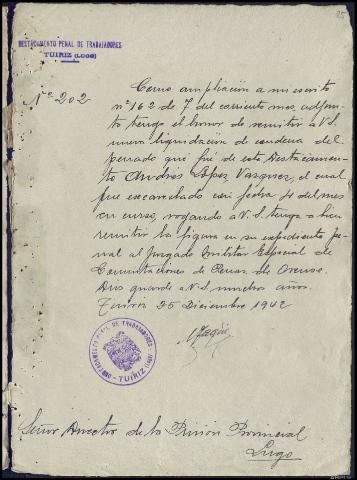 25
DESTACAMENTO PENAL DE TRABAJADORES
TUIRIZ (LUGO)
Nº 202
Como ampliación a mi escrito
nº 162 de 7 del corriente mes, adjun-
to tengo el honor de remitir a V.S.
nueva liquidación de condena del
penado que fué de este Destacamen-
to Andrés López Vazquez, el cual
fue excarcelado con fecha 4 del mes
en curso, rogando a V.S. tenga a bien
remitir la figura en su expediente pe-
nal al Juzgado Militar Especial de
Conmutaciones de Penas de Orense.
Dios guarde a V.S. muchos años.
Tuiriz 25 Diciembre 1942
DESTACAMENTO PENAL DE TRABAJADORES
TUIRIZ (LUGO)
Señor Director de la Prisión Provincial
Lugo